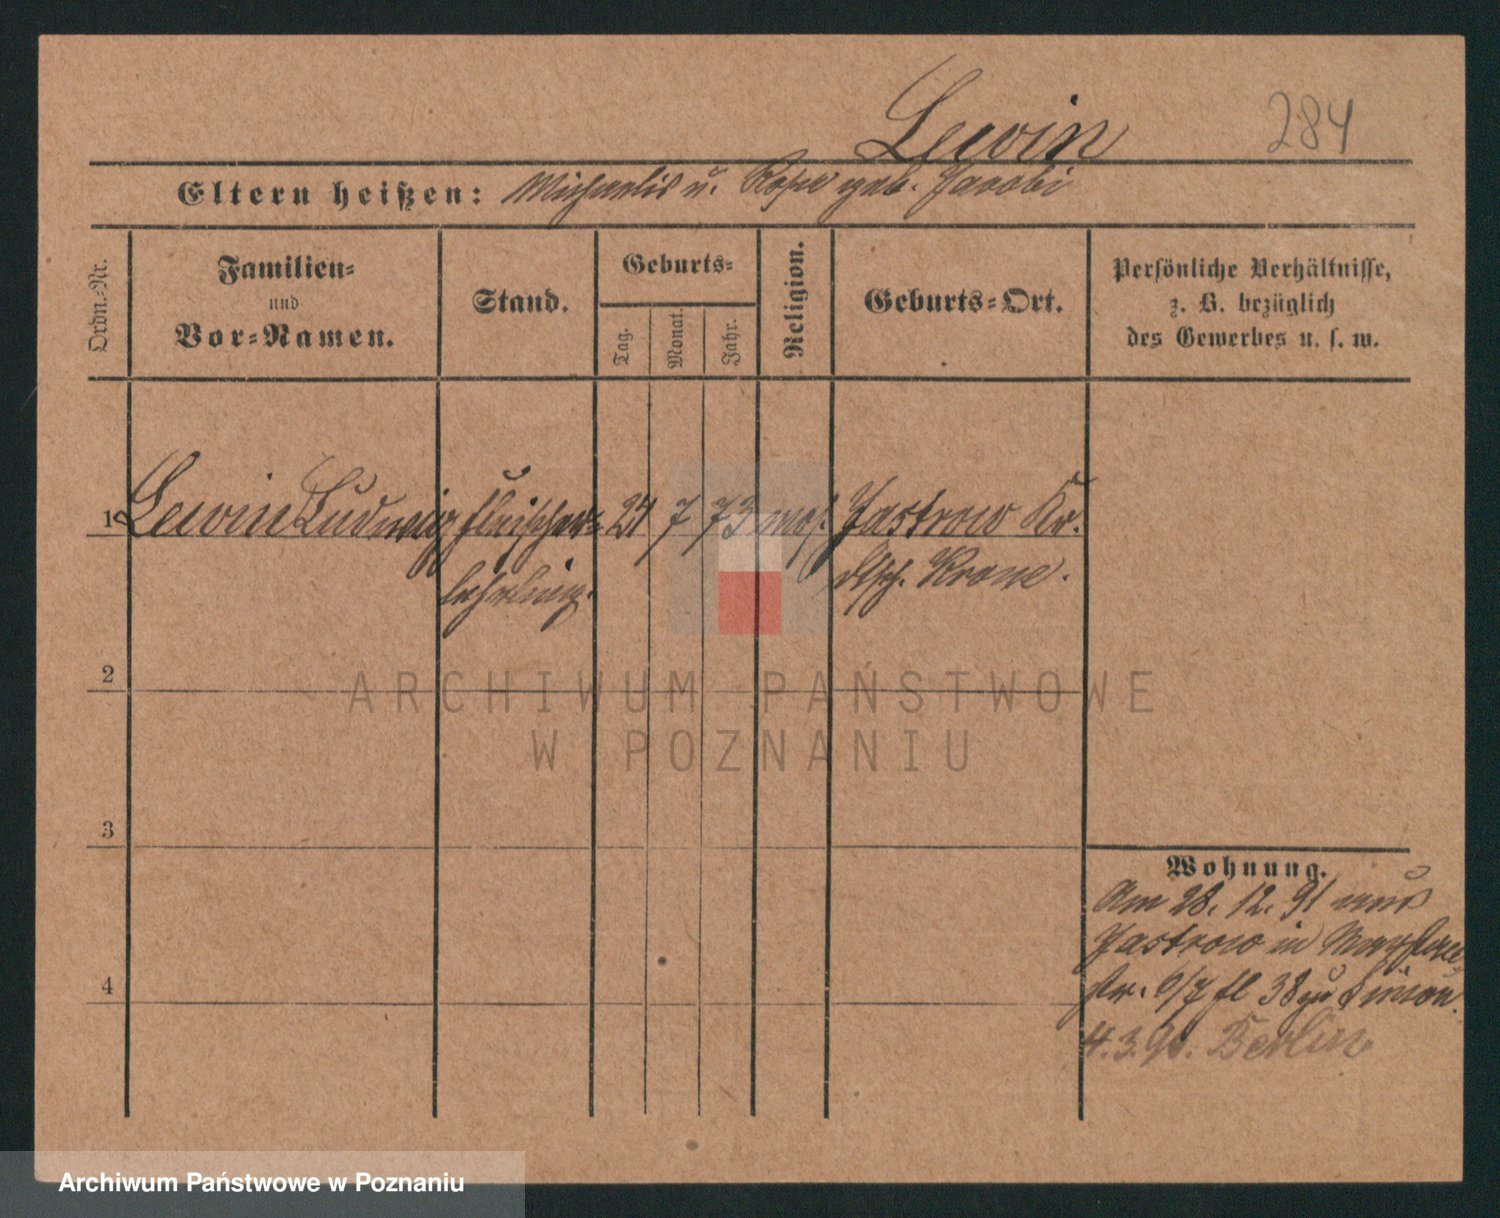 Lewin 284
Eltern heißen: Michaelis u. Rosa geb. Jacobi
Ordn.-Nr.
Familien-
und
Vor-Namen.
Stand.
Geburts-
Tag.
Monat.
Jahr.
Religion.
Geburts-Ort.
Persönliche Verhältnisse,
z. B. bezüglich
des Gewerbes u. s. w.
1 Lewin Ludwig Fleischer- 24 7 73 mos. Jastrow Kr.
lehrling. dtsch. Krone.
2
ARCHIWUM PAŃSTWOWE
W POZNANIU
3
Wohnung.
Am 28. 12. 91 aus
Jastrow in
str. 6/7 fl 38 zu Simon.
4
4. 3. Berlin
Archiwum Państwowe w Poznaniu